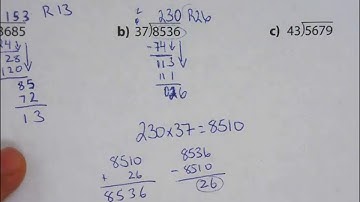 153 R13
3685
28
120
85
72
13
b) 37)8536
230 R26
-74
113
111
26
230 x 37 = 8510
8510
+ 26
8536
8536
- 8510
26
c) 43)5679